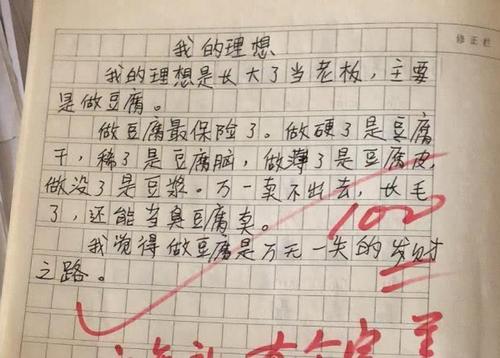 修正栏
我的理想
我的理想是长大了当老板，主要
是做豆腐。
做豆腐最保险了。做硬了是豆腐
干，稀了是豆腐脑，做薄了是豆腐皮，
做没了是豆浆。万一卖不出去，长毛
了，还能当臭豆腐卖。
100
我觉得做豆腐是万无一失的发财
之路。